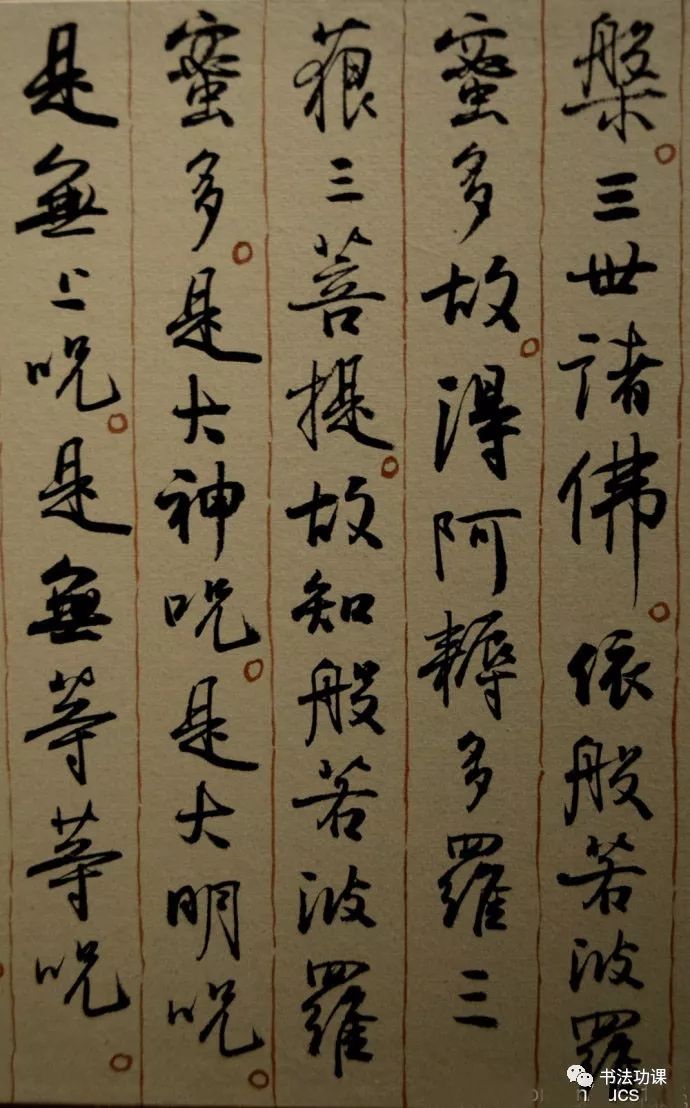 槃。三世諸佛。依般若波羅
蜜多故。得阿耨多羅三
藐三菩提。故知般若波羅
蜜多。是大神呪。是大明呪。
是無上呪。是無等等呪。
书法功课